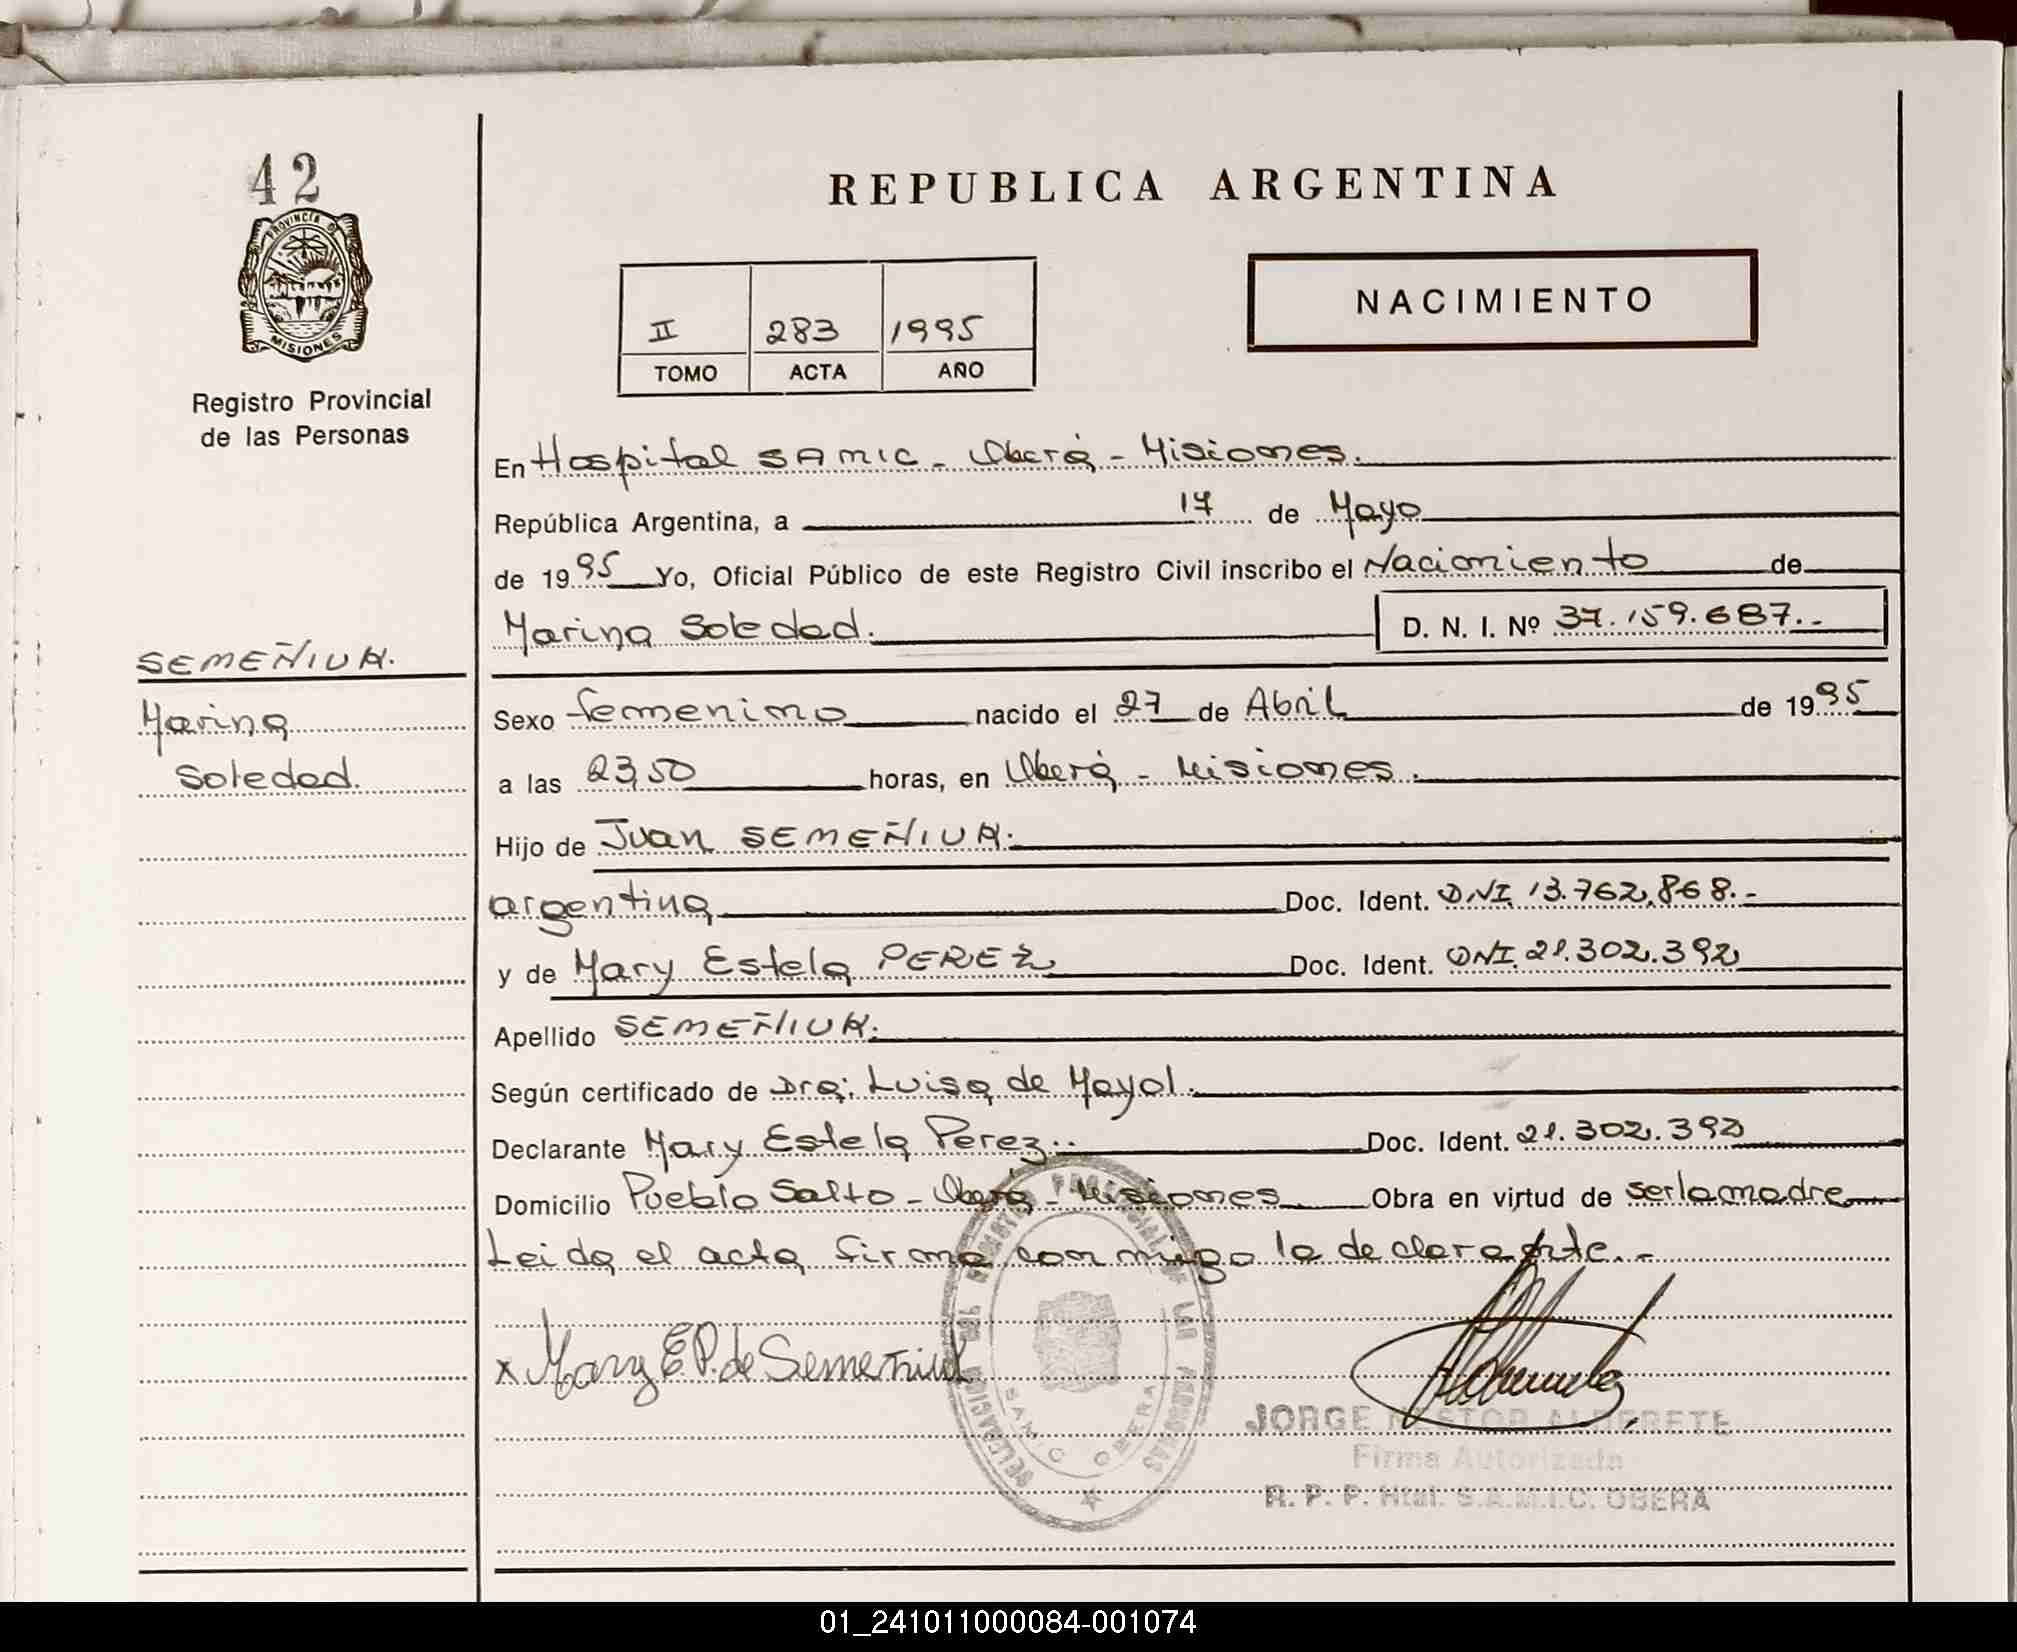 42
PROVINCIA DE
MISIONES
Registro Provincial
de las Personas
SEMEÑIUK.
Marina
Soledad.
REPUBLICA ARGENTINA
II 283 1995
TOMO ACTA AÑO
NACIMIENTO
En Hospital SAMIC - Oberá - Misiones.
República Argentina, a 17 de Mayo
de 1995 Yo, Oficial Público de este Registro Civil inscribo el Nacimiento de
Marina Soledad. D. N. I. Nº 37.159.687.-
Sexo femenino nacido el 27 de Abril de 1995
a las 23,50 horas, en Oberá - Misiones.
Hijo de Juan SEMEÑIUK.
argentina Doc. Ident. DNI. 13.762.868.-
y de Mary Estela PEREZ Doc. Ident. DNI. 21.302.392
Apellido SEMEÑIUK.
Según certificado de Dra: Luisa de Mayol.
Declarante Mary Estela Perez.. Doc. Ident. 21.302.392
Domicilio Pueblo Salto - Oberá - Misiones Obra en virtud de ser la madre
Leida el acta firma conmigo la declarante.-
x Mary E P. de Semeñiuk
DELEGACION DEL REGISTRO PROVINCIAL DE LAS PERSONAS
SAMIC OBERA
JORGE NESTOR ALDERETE
Firma Autorizada
R. P. P. Htal. S.A.M.I.C. OBERA
01_241011000084-001074